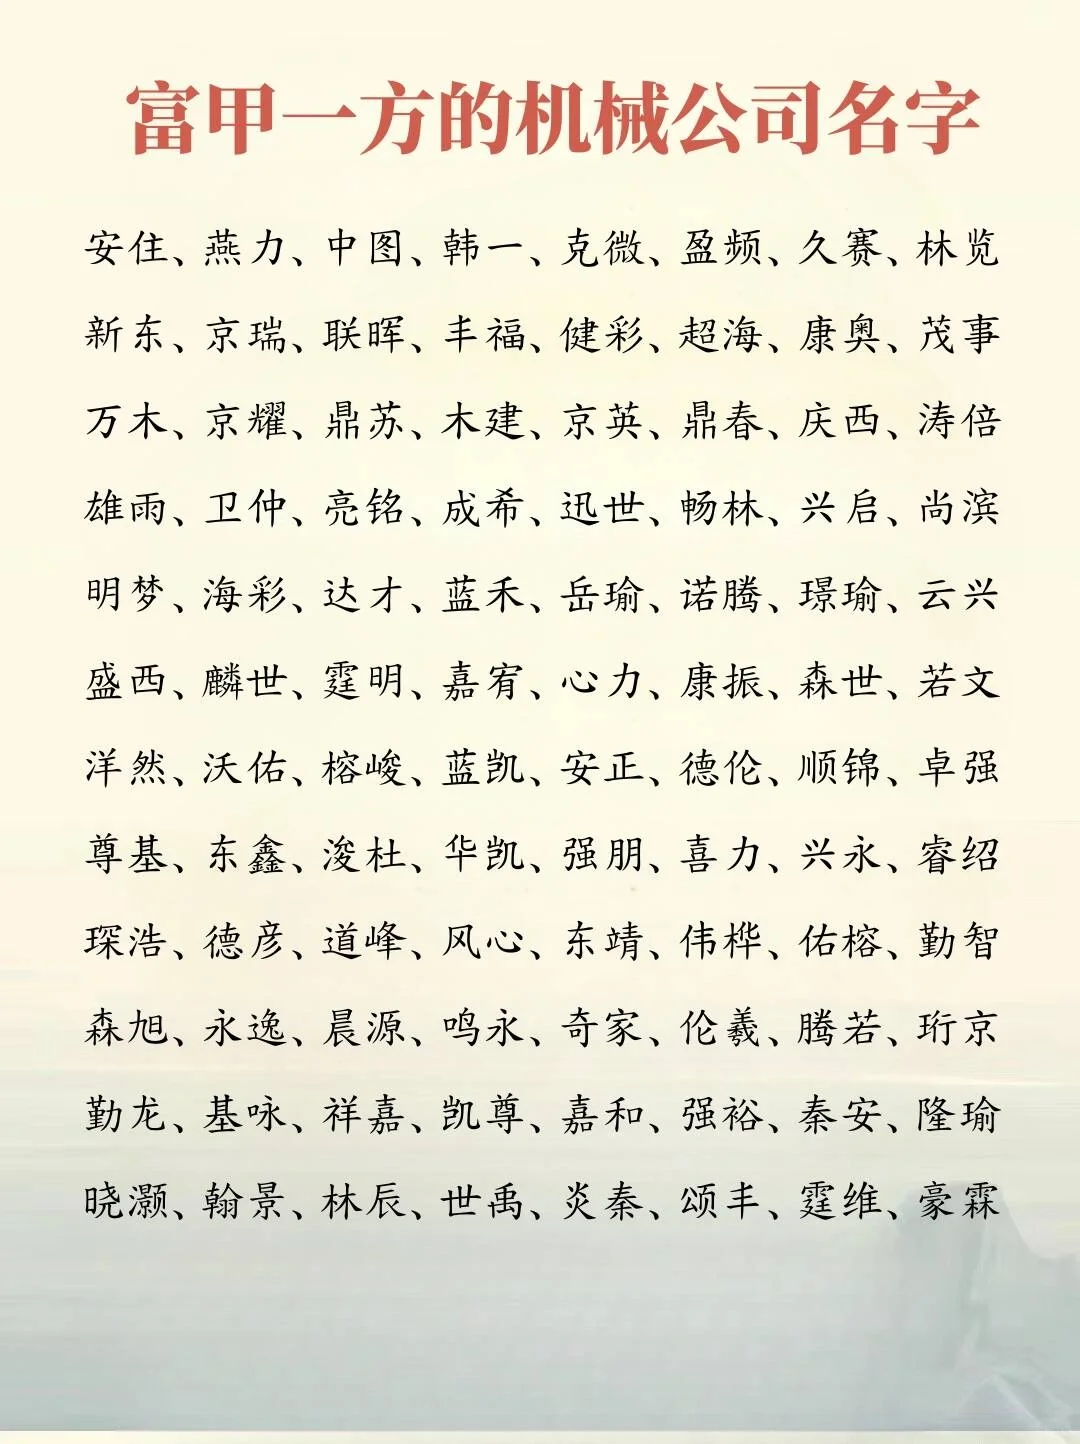 富甲一方的机械公司名字
安住、燕力、中图、韩一、克微、盈频、久赛、林览
新东、京瑞、联晖、丰福、健彩、超海、康奥、茂事
万木、京耀、鼎苏、木建、京英、鼎春、庆西、涛倍
雄雨、卫仲、亮铭、成希、迅世、畅林、兴启、尚滨
明梦、海彩、达才、蓝禾、岳瑜、诺腾、璟瑜、云兴
盛西、麟世、霆明、嘉宥、心力、康振、森世、若文
洋然、沃佑、榕峻、蓝凯、安正、德伦、顺锦、卓强
尊基、东鑫、浚杜、华凯、强朋、喜力、兴永、睿绍
琛浩、德彦、道峰、风心、东靖、伟桦、佑榕、勤智
森旭、永逸、晨源、鸣永、奇家、伦羲、腾若、珩京
勤龙、基咏、祥嘉、凯尊、嘉和、强裕、秦安、隆瑜
晓灏、翰景、林辰、世禹、炎秦、颂丰、霆维、豪霖